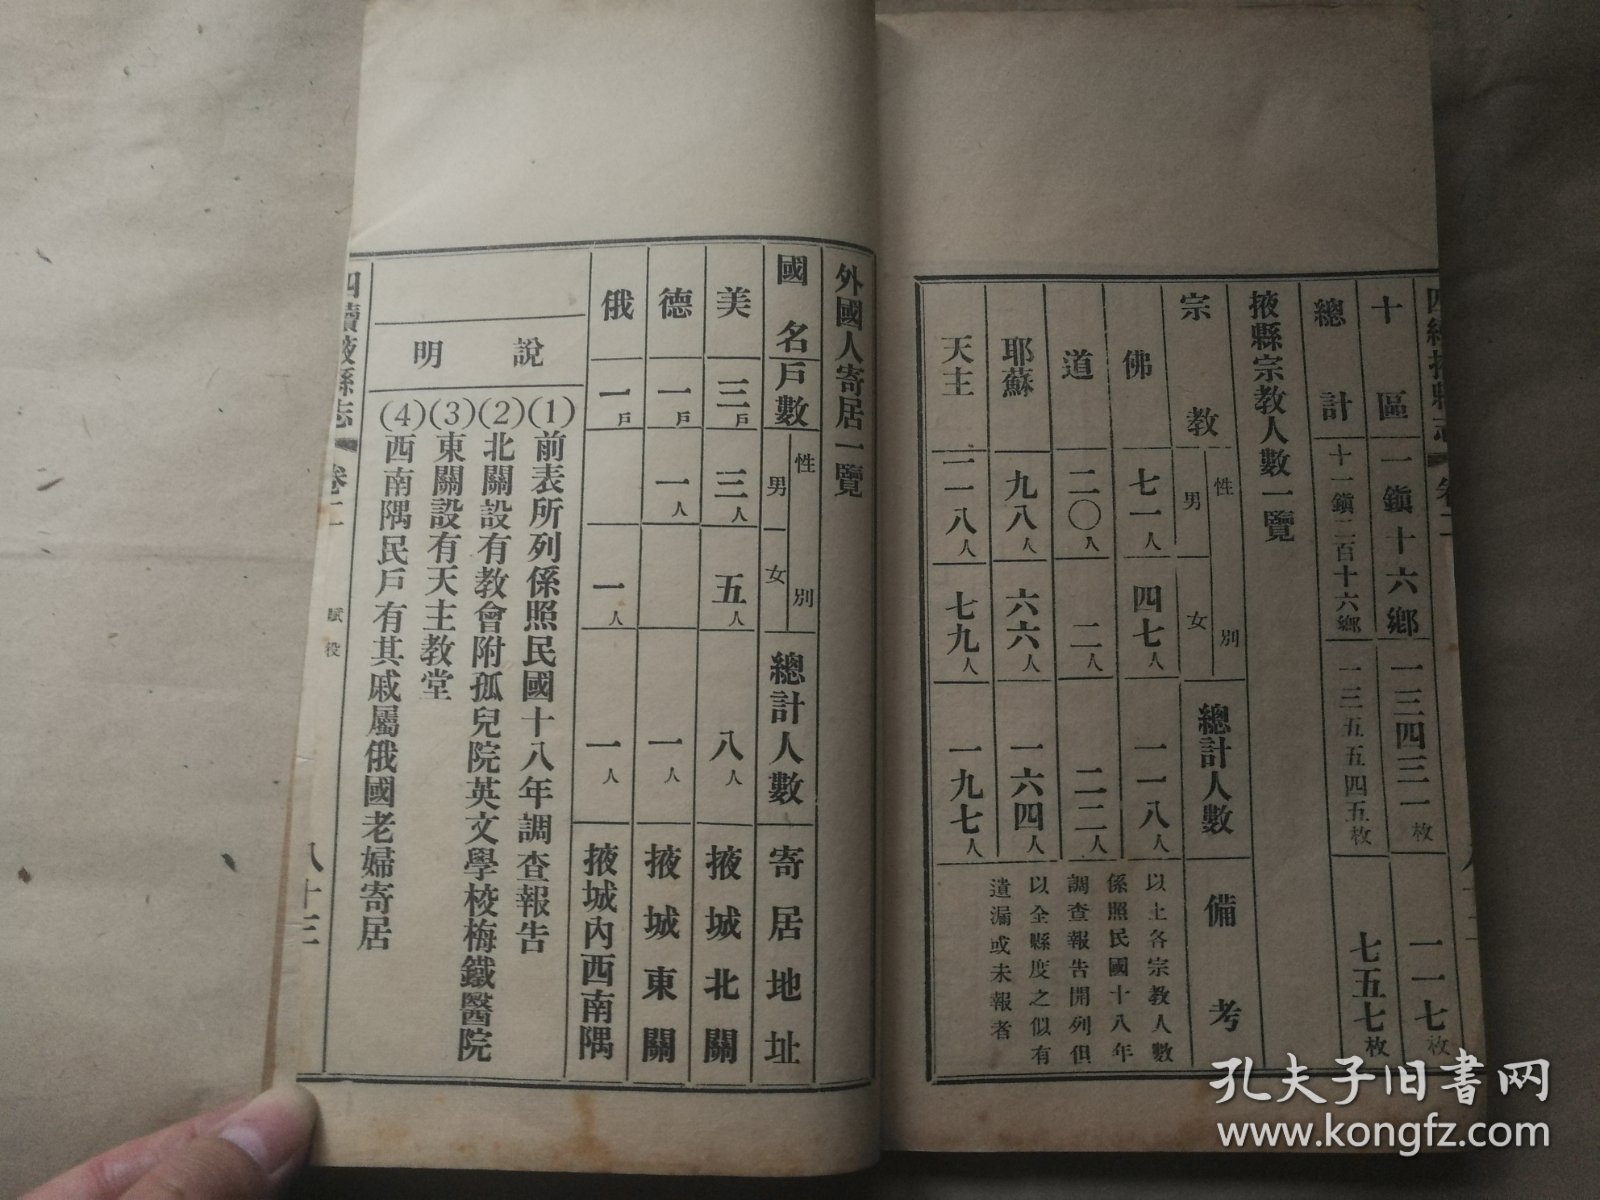 四續掖縣志 卷二
十區 一鎮十六鄉 一三四三一枚 一一七枚
總計 十一鎮二百十六鄉 一三五五四五枚 七五七枚
掖縣宗教人數一覽
宗教 性別 男 女 總計人數 備考
佛 七一人 四七人 一一八人
道 二〇人 二人 二二人
耶蘇 九八人 六六人 一六四人
天主 一一八人 七九人 一九七人
以上各宗教人數
係照民國十八年
調查報告開列但
以全縣度之似有
遺漏或未報者
外國人寄居一覽
國名 戶數 性別 男 女 總計人數 寄居地址
美 三戶 三人 五人 八人 掖城北關
德 一戶 一人 一人 掖城東關
俄 一戶 一人 一人 掖城內西南隅
說明
(1)前表所列係照民國十八年調查報告
(2)北關設有教會附孤兒院英文學校梅鐵醫院
(3)東關設有天主教堂
(4)西南隅民戶有其戚屬俄國老婦寄居
四續掖縣志 卷二 賦役 八十三
孔夫子旧书网
www.kongfz.com